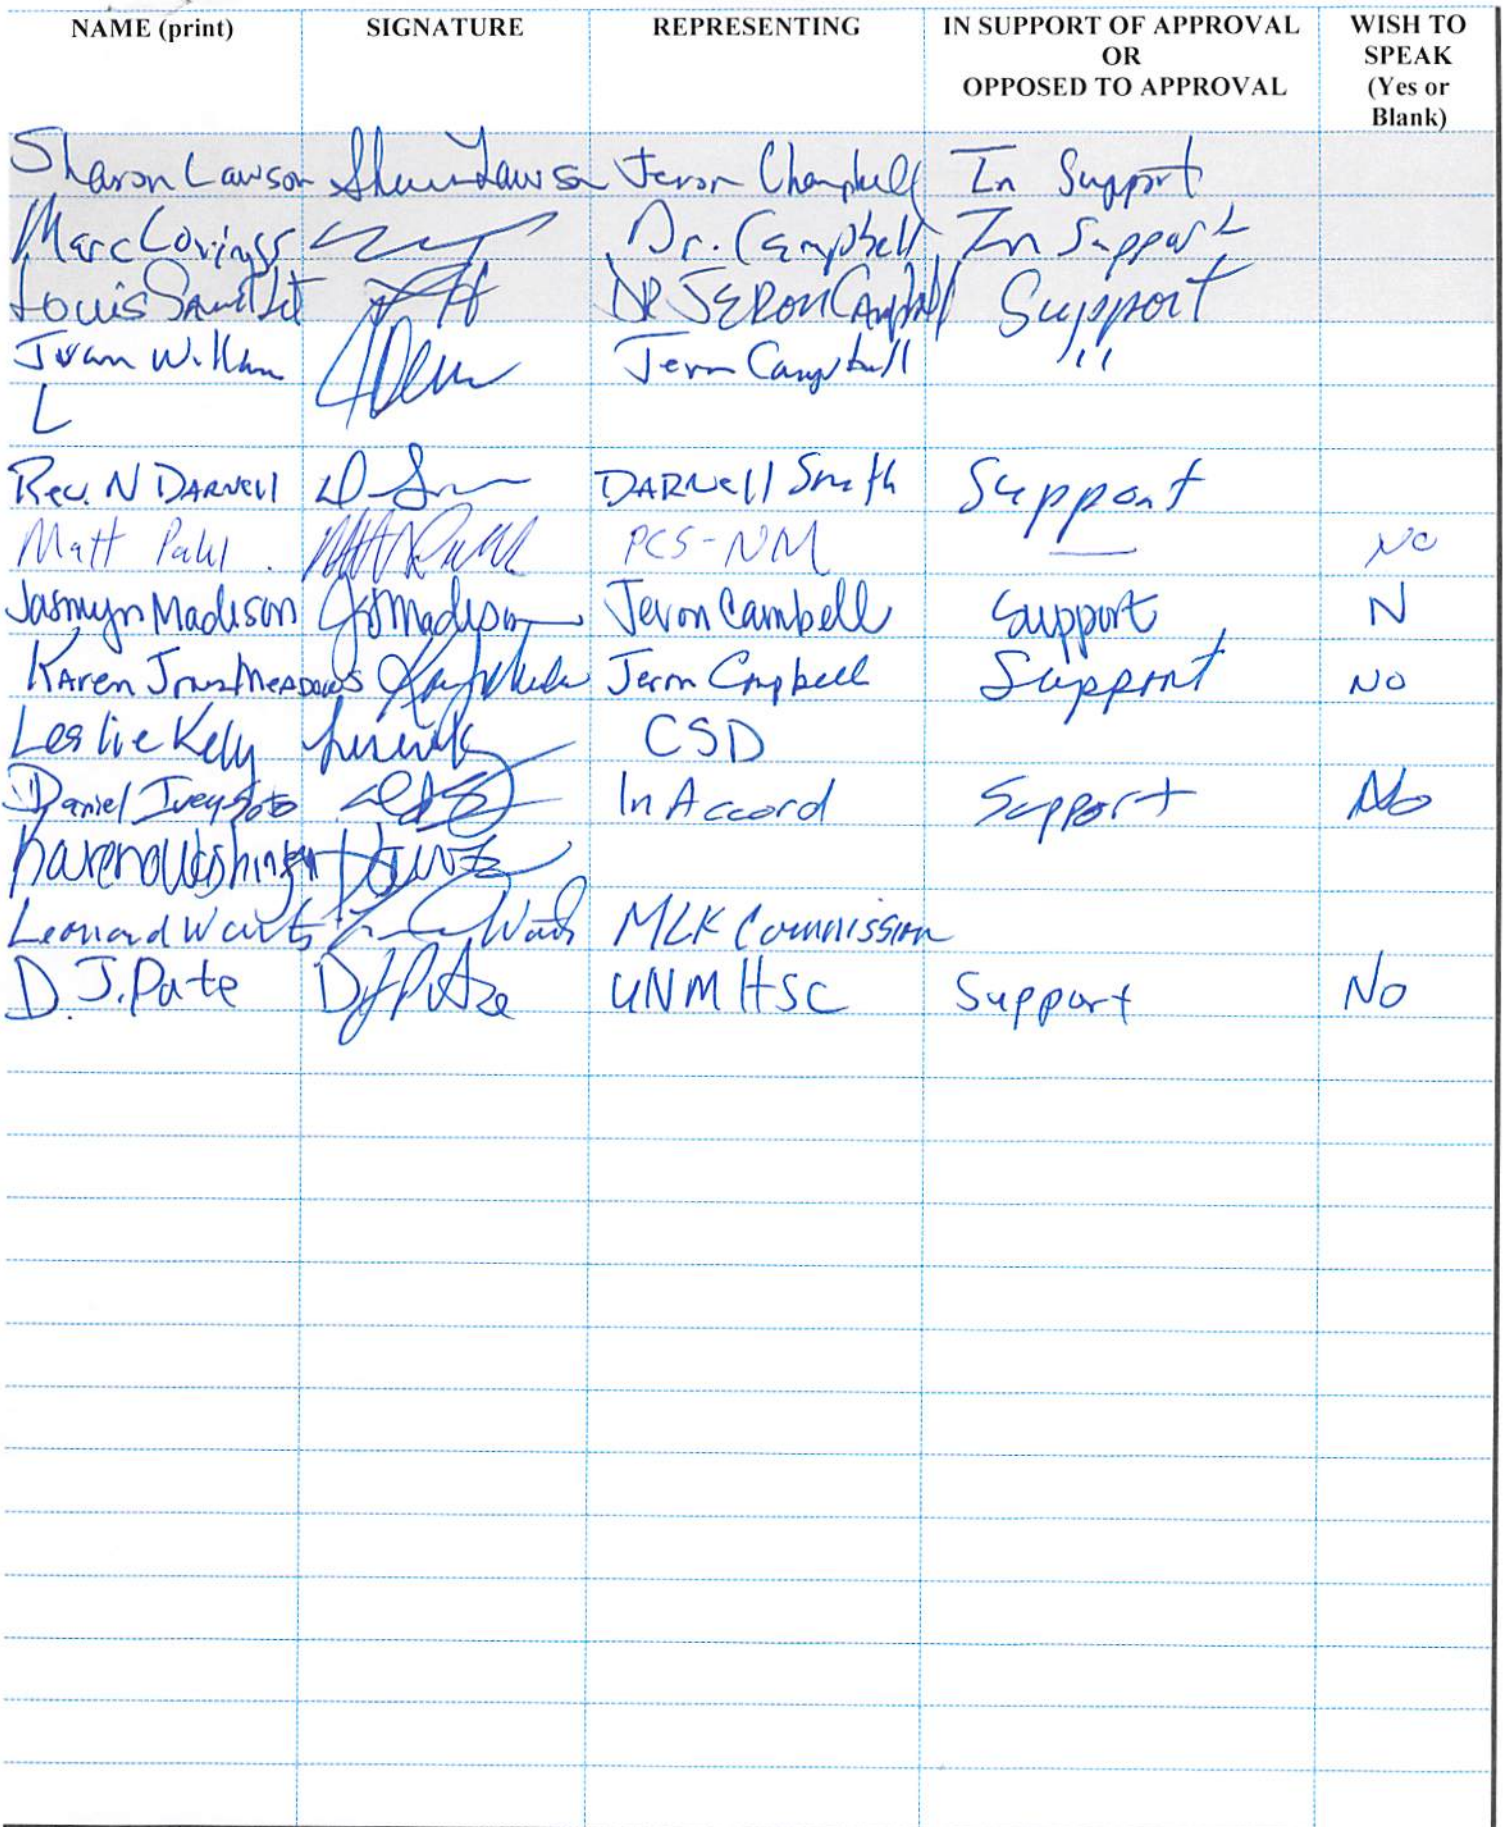 NAME (print) SIGNATURE REPRESENTING IN SUPPORT OF APPROVAL WISH TO
OR SPEAK
OPPOSED TO APPROVAL (Yes or
Blank)
Sharon Lawson Sharon Lawson Jeron Champbell In Support
Marc Covings Dr. Campbell In Support
Louis DR JERON Campbell Support
Jeron Campbell 11
L
Rev. N DARNell DARNell Smith Support
Matt Pahl PCS-NM — No
Jasmyn Madison JMadison Jevon Cambell Support N
KAren Jones MEADOWS Jeron Campbell Support No
Leslie Kelly CSD
Daniel Ivey Soto In Accord Support No
Karen Washington
Leonard Waits MLK Commission
D. J. Pate UNM HSC Support No